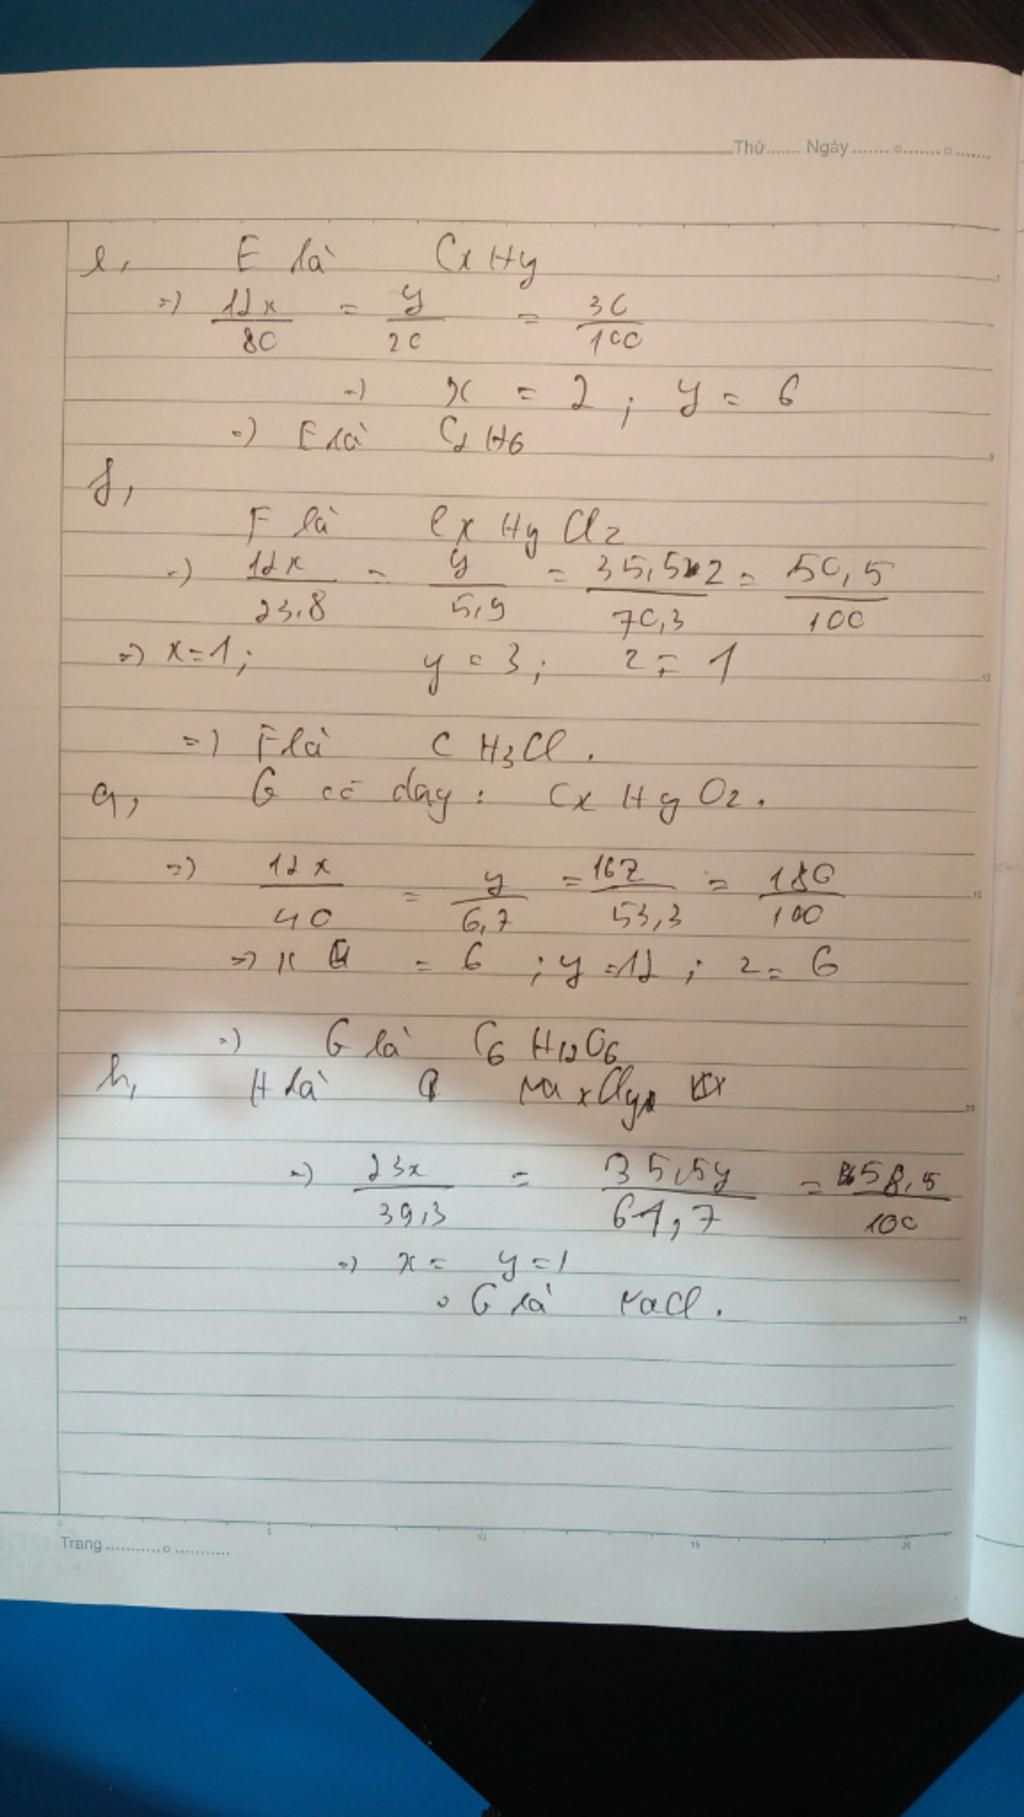 Thứ....... Ngày.......o.......o.......
e, E là CxHy
=) 12x/80 = y/20 = 30/100
=) x = 2 ; y = 6
=) E là C2H6
f,
F là CxHyClz
=) 12x/23,8 = y/5,9 = 35,5z/70,3 = 50,5/100
=) x=1 ; y = 3 ; z = 1
=) F là CH3Cl.
g, G có dạng : CxHyOz.
=) 12x/40 = y/6,7 = 16z/53,3 = 180/100
=) x = 6 ; y = 12 ; z = 6
=) G là C6H12O6
h, H là NaxCly
=) 23x/39,3 = 35,5y/61,7 = 58,5/100
=) x = y = 1
G là NaCl.
Trang...........o...........